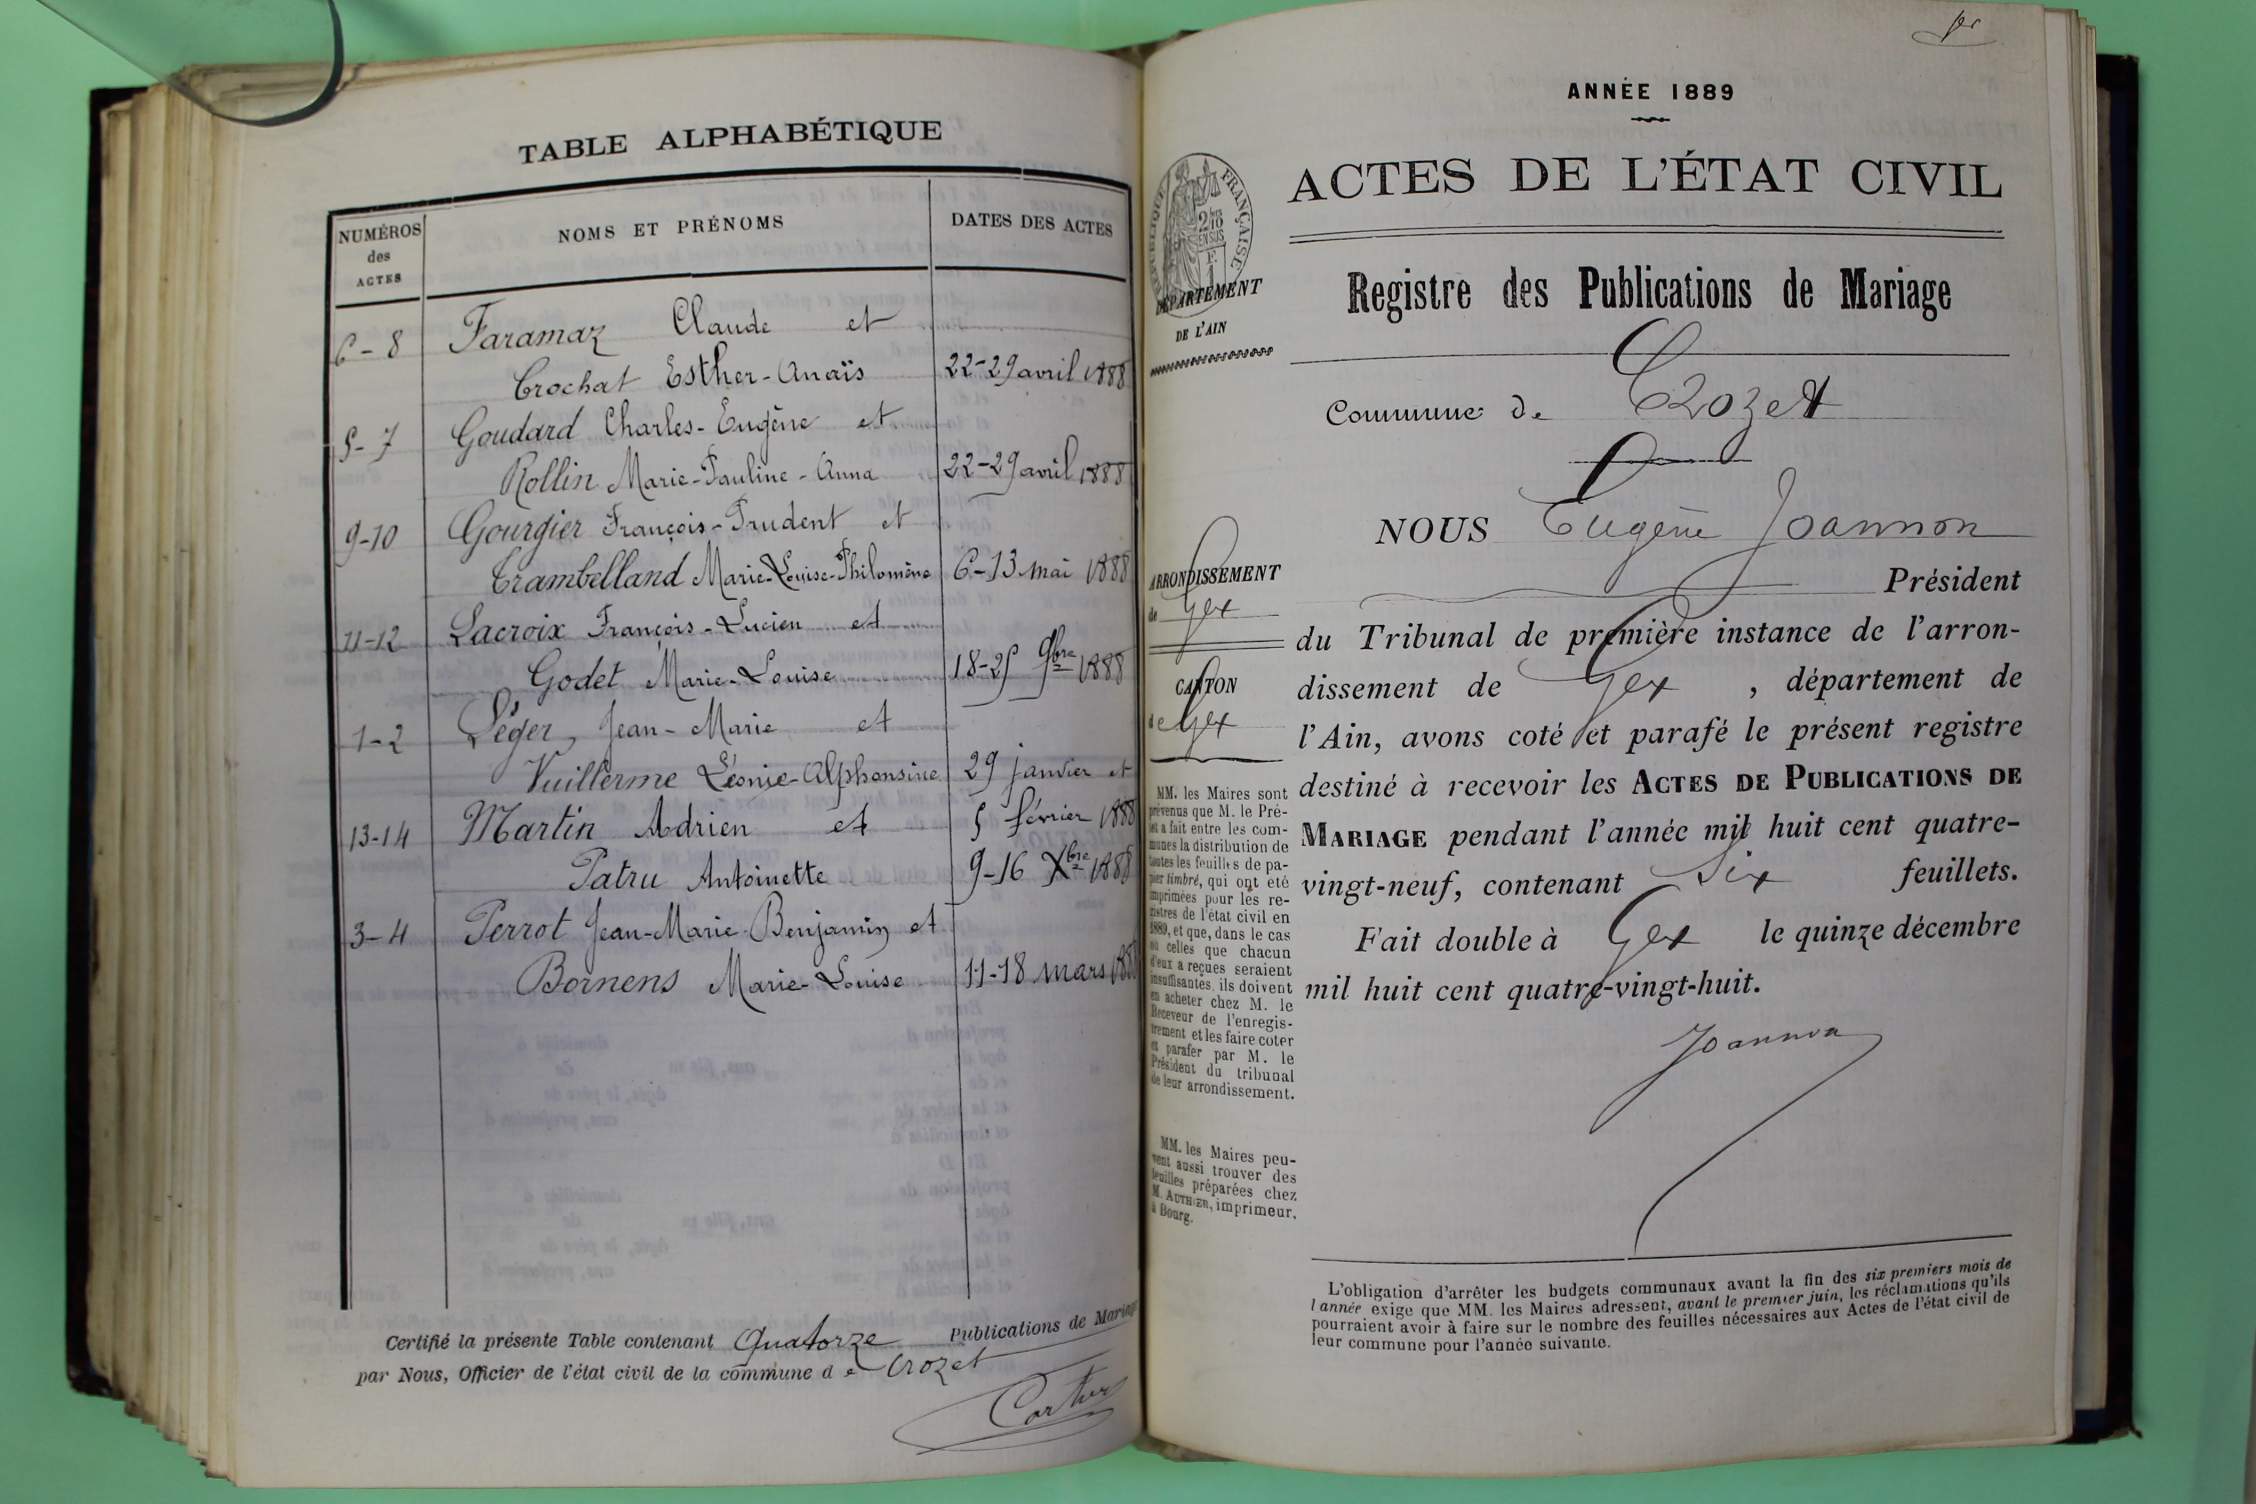 TABLE ALPHABÉTIQUE
NUMÉROS des ACTES
NOMS ET PRÉNOMS
DATES DES ACTES
6-8 Faramaz Claude et
Crochat Esther-Anaïs 22-29 avril 1888
5-7 Goudard Charles-Eugène et
Rollin Marie-Pauline-Anna 22-29 avril 1888
9-10 Gourgier François-Prudent et
Crambelland Marie-Louise-Philomène 6-13 mai 1888
11-12 Lacroix François-Lucien et
Godet Marie-Louise 18-25 9bre 1888
1-2 Léger, Jean-Marie et
Vuillerme Léonie-Alphonsine 29 janvier et
13-14 Martin Adrien et 5 février 1888
Patru Antoinette 9-16 Xbre 1888
3-4 Perrot Jean-Marie-Benjamin et
Bornens Marie-Louise 11-18 mars 1888
Certifié la présente Table contenant Quatorze Publications de Mariage
par Nous, Officier de l'état civil de la commune de Crozet
1er
ANNÉE 1889
ACTES DE L'ÉTAT CIVIL
RÉPUBLIQUE FRANÇAISE
DÉPARTEMENT
DE L'AIN
Registre des Publications de Mariage
Commune de Crozet
NOUS Eugène Joannon
Président
du Tribunal de première instance de l'arron-
dissement de Gex, département de
l'Ain, avons coté et parafé le présent registre
destiné à recevoir les ACTES DE PUBLICATIONS DE
MARIAGE pendant l'année mil huit cent quatre-
vingt-neuf, contenant Six feuillets.
Fait double à Gex le quinze décembre
mil huit cent quatre-vingt-huit.
Joannon
ARRONDISSEMENT
de Gex
CANTON
de Gex
MM. les Maires sont
prévenus que M. le Pré-
fet a fait entre les com-
munes la distribution de
toutes les feuilles de pa-
pier timbré, qui ont été
imprimées pour les re-
gistres de l'état civil en
1889, et que, dans le cas
où celles que chacun
d'eux a reçues seraient
insuffisantes, ils doivent
en acheter chez M. le
Receveur de l'enregis-
trement et les faire coter
et parafer par M. le
Président du tribunal
de leur arrondissement.
MM. les Maires peu-
vent aussi trouver des
feuilles préparées chez
M. AUTHIER, imprimeur,
à Bourg.
L'obligation d'arrêter les budgets communaux avant la fin des six premiers mois de
l'année exige que MM. les Maires adressent, avant le premier juin, les réclamations qu'ils
pourraient avoir à faire sur le nombre des feuilles nécessaires aux Actes de l'état civil de
leur commune pour l'année suivante.